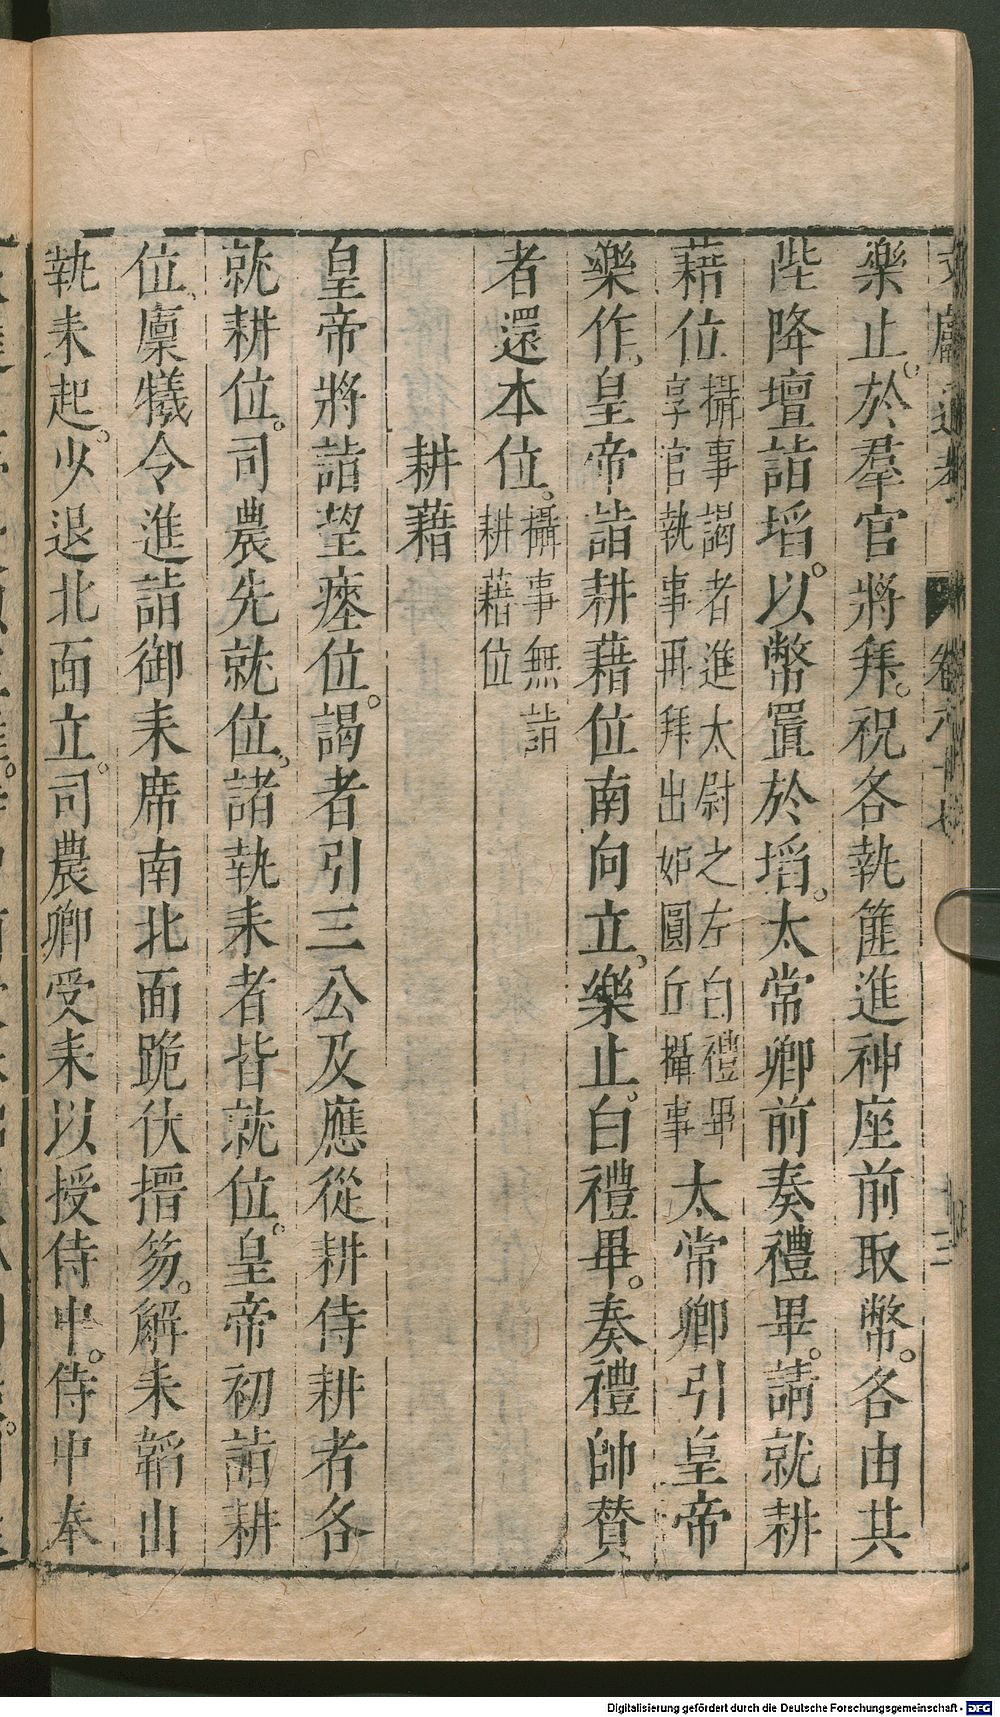 樂止。於羣官將拜。祝各執篚進神座前取幣。各由其
陛降壇詣埳。以幣置於埳。太常卿前奏禮畢。請就耕
藉位
攝事謁者進太尉之左白禮畢
享官執事再拜出如圓丘攝事
太常卿引皇帝
樂作。皇帝詣耕藉位南向立。樂止。白禮畢。奏禮帥贊
者還本位。
攝事無詣
耕藉位
耕藉
皇帝將詣望瘞位。謁者引三公及應從耕侍耕者各
就耕位。司農先就位。諸執耒者皆就位。皇帝初詣耕
位。廩犧令進詣御耒席南北面跪伏搢笏。解耒韜出
執耒起。少退北面立。司農卿受耒以授侍中。侍中奉
Digitalisierung gefördert durch die Deutsche Forschungsgemeinschaft - DFG